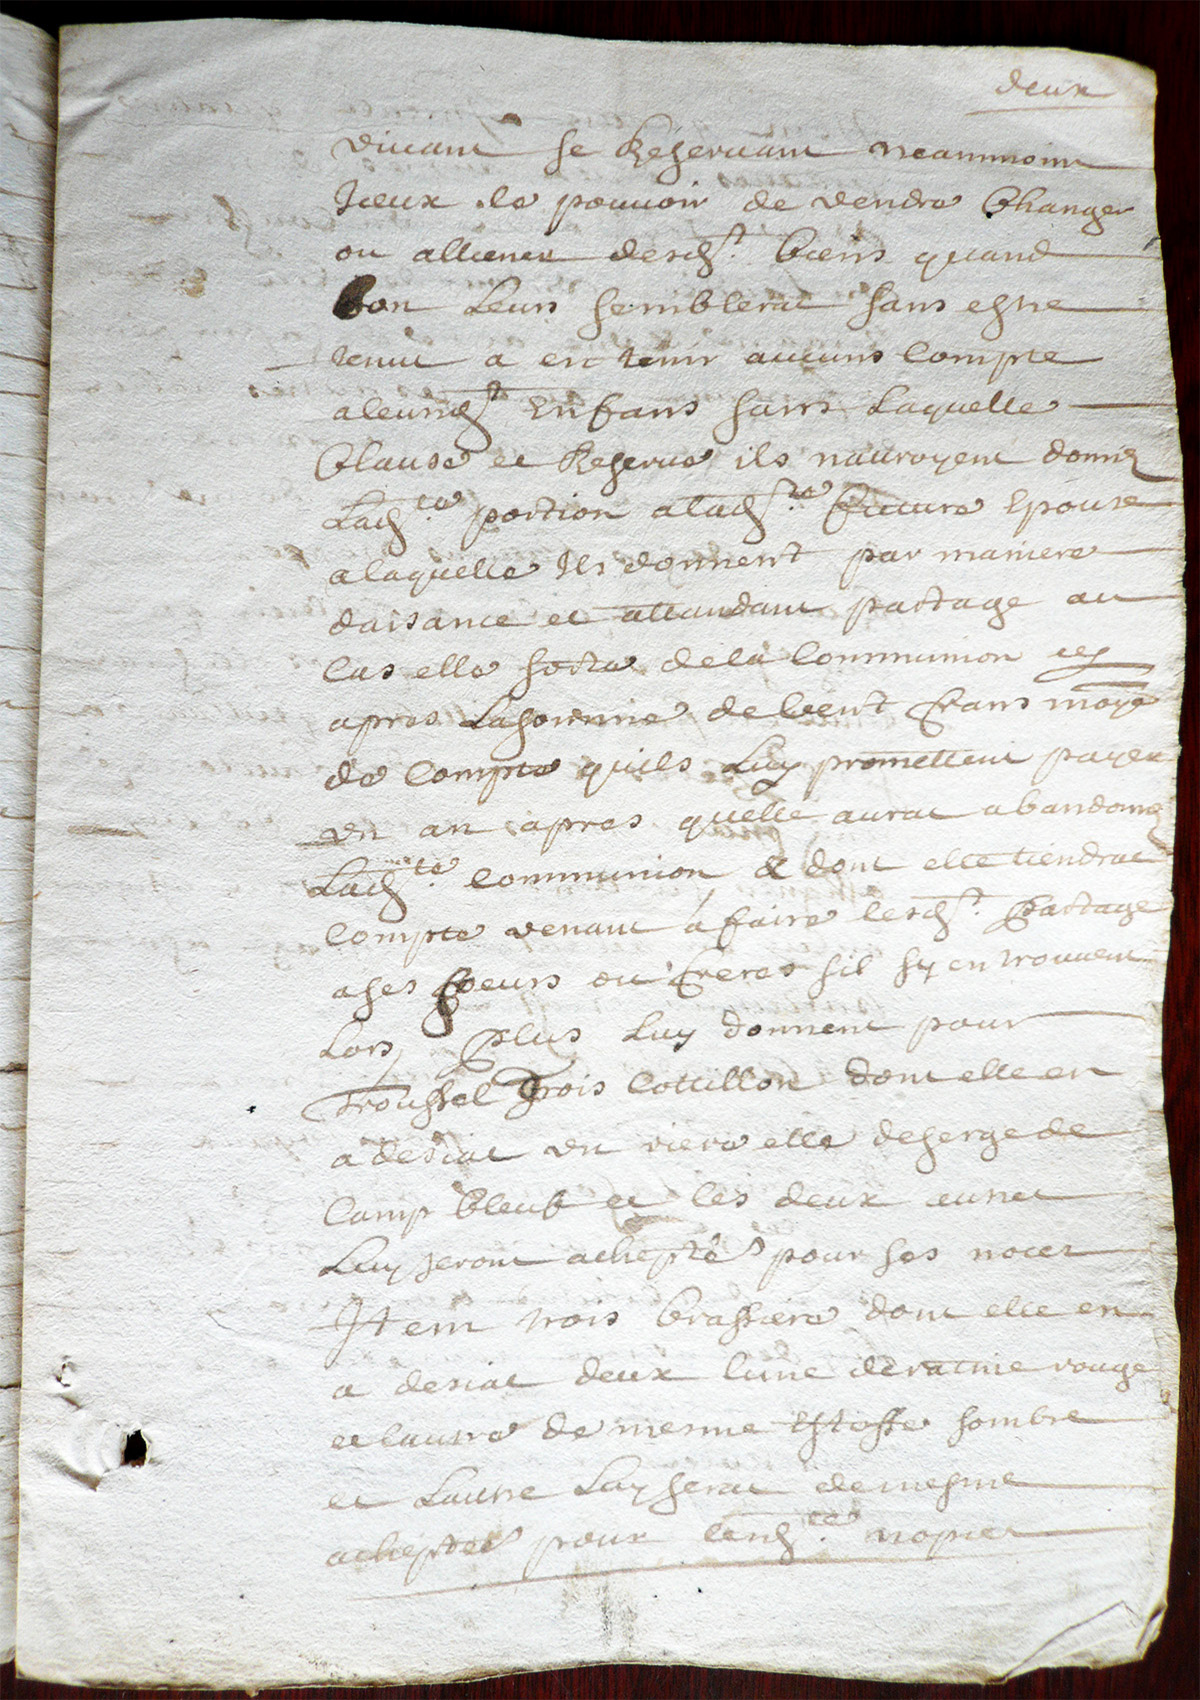 deux
vivant se Reservant neanmoin
Iceux le pouvoir de vendre Changer
ou alliener desd.t biens quand
bon Leurs semblerat sans estre
tenut a en tenir aucuns Compte
a leursd.t Enfans sans Laquelle
Clause et Reserve ils nauroyent donné
Lad.te portion a lad.te future Epouse
a laquelle Ils donnent par maniere
daisance et attandant partage au
Cas elle sorte de la Communion et
apres Lasortie de Cent frans monoye
de Compte quils Luy promettent payer
un an apres quelle aurat abandonné
Lad.te Communion & dont elle tiendrat
Compte venant a faire lesd.t Partage
a ses soeurs ou freres sil sy en trouvent
Lors, Plus Luy donnent pour
troussel trois Cottillon dont elle en
a desiat un riere elle de serge de
Camp bleuf et les deux autret
Luy seront acheptés pour ses nocet
Item trois brassiere dont elle en
a desiat deux lune de ratine rouge
et lautre de mesme Estoffe sombre
et Lautre Luy serat de mesme
acheptee pour lesd.te nopcet